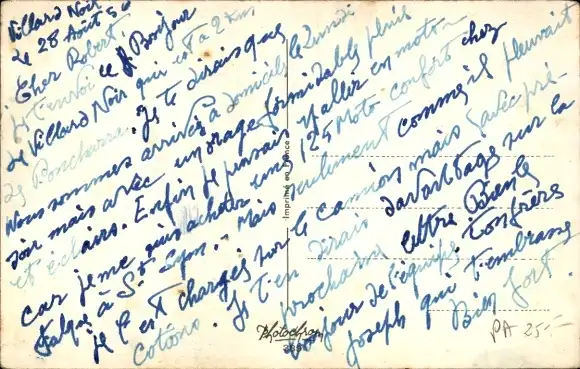 Villard Noir
le 28 Août 56
Cher Robert
Je t'envoi ce p Bonjour
de Villard Noir qui est à 2 Km
de Poncharra. Je te dirais que
Nous sommes arrivés à domicile le Lundi
soir mais avec un orage formidable pluie
et éclairs. Enfin je pensais y aller en moto
car je me suis acheter une 125 Moto confort chez
Falque à St Mais seulement comme il pleuvait
je l'est chargés sur le camions mais
Je t'en dirais davantage sur la
prochaine lettre. Bien le
bonjour de l'équipe. Ton frères
Joseph qui t'embrasse
Bien fort
Imprimé en France
Photochrom
PA - 25 -